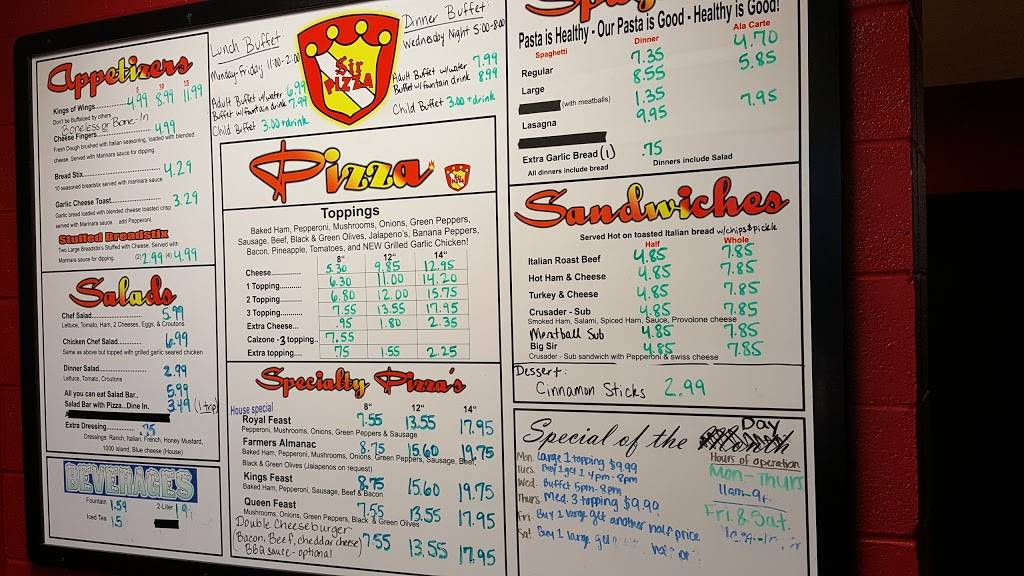 Appetizers
5 10 15
Kings of Wings 4.99 8.99 11.99
Don't be Buffaloed by others
Boneless or Bone-In
Cheese Fingers 4.99
Fresh Dough brushed with Italian seasoning, loaded with blended
cheese. Served with Marinara sauce for dipping.
Bread Stix 4.29
10 seasoned breadstix served with marinara sauce
Garlic Cheese Toast 3.29
Garlic bread loaded with blended cheese toasted crisp
served with Marinara sauce. add Pepperoni.
Stuffed Breadstix
Two Large Breadstix's Stuffed with Cheese. Served with
Marinara sauce for dipping. (2) 2.99 (4) 4.99
Salads
Chef Salad 5.99
Lettuce, Tomato, Ham, 2 Cheeses, Eggs, & Croutons
Chicken Chef Salad 6.99
Same as above but topped with grilled garlic seared chicken
Dinner Salad 2.99
Lettuce, Tomato, Croutons
All you can eat Salad Bar.. 5.99
Salad Bar with Pizza..Dine In. 3.49 (1 trip)
Extra Dressing .75
Dressings: Ranch, Italian, French, Honey Mustard,
1000 island, Blue cheese (House)
BEVERAGES
Fountain 1.59 2-Liter
Iced Tea 1.5
Lunch Buffet:
Monday-Friday 11:00-2:00
Adult Buffet w/water 6.99
Buffet w/fountain drink 7.99
Child Buffet 3.00 + drink
Sir PIZZA
Dinner Buffet:
Wednesday Night 5:00-8:00
Adult Buffet w/water 7.99
Buffet w/fountain drink 8.99
Child Buffet 3.00 + drink
Pizza
Toppings
Baked Ham, Pepperoni, Mushrooms, Onions, Green Peppers,
Sausage, Beef, Black & Green Olives, Jalapeno's, Banana Peppers,
Bacon, Pineapple, Tomatoes, and NEW Grilled Garlic Chicken!
8" 12" 14"
Cheese 5.30 9.85 12.95
1 Topping 6.30 11.00 14.20
2 Topping 6.80 12.00 15.75
3 Topping 7.55 13.55 17.95
Extra Cheese... .95 1.80 2.35
Calzone - 3 topping.. 7.55
Extra topping.... 75 1.55 2.25
Specialty Pizza's
House special 8" 12" 14"
Royal Feast 7.55 13.55 17.95
Pepperoni, Mushrooms, Onions, Green Peppers & Sausage
Farmers Almanac 8.75 15.60 19.75
Baked Ham, Pepperoni, Mushrooms, Onions, Green Peppers, Sausage, Beef,
Black & Green Olives (Jalapenos on request)
Kings Feast 8.75 15.60 19.75
Baked Ham, Pepperoni, Sausage, Beef & Bacon
Queen Feast 7.55 13.55 17.95
Mushrooms, Onions, Green Peppers, Black & Green Olives
Double Cheeseburger
(Bacon, Beef, cheddar cheese) 7.55 13.55 17.95
BBQ sauce - optional
Pasta is Healthy - Our Pasta is Good - Healthy is Good!
Spaghetti Dinner Ala Carte
Regular 7.35 4.70
Large 8.55 5.85
(with meatballs) 1.35
Lasagna 9.95 7.95
Extra Garlic Bread (1) .75
All dinners include bread Dinners include Salad
Sandwiches
Served Hot on toasted Italian bread w/chips & pickle
Half Whole
Italian Roast Beef 4.85 7.85
Hot Ham & Cheese 4.85 7.85
Turkey & Cheese 4.85 7.85
Crusader - Sub 4.85 7.85
Smoked Ham, Salami, Spiced Ham, Sauce, Provolone cheese
Meatball Sub 4.85 7.85
Big Sir 4.85 7.85
Crusader - Sub sandwich with Pepperoni & swiss cheese
Dessert:
Cinnamon Sticks 2.99
Special of the Day
Mon Large 1 topping $9.99
Tues. Buy 1 get 1 4pm-8pm
Wed. Buffet 5pm-8pm
Thurs Med. 3 topping $9.90
Fri. Buy 1 large get another half price
Sat Buy 1 large
Hours of operation
Mon-Thurs
11am-9
Fri & Sat.